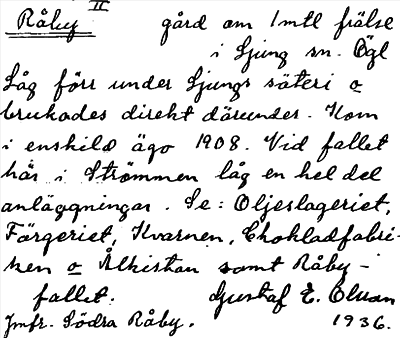 Råby II gård om 1 mtl frälse
i Ljung sn. Ögl
Låg förr under Ljungs säteri o
brukades direkt därunder. Kom
i enskild ägo 1908. Vid fallet
här i Strömmen låg en hel del
anläggningar. Se: Oljeslageriet,
Färgeriet, Kvarnen, Chokladfabri-
ken o Ålkistan samt Råby-
fallet. Gustaf E. Oluan
Jmfr. Södra Råby. 1936.